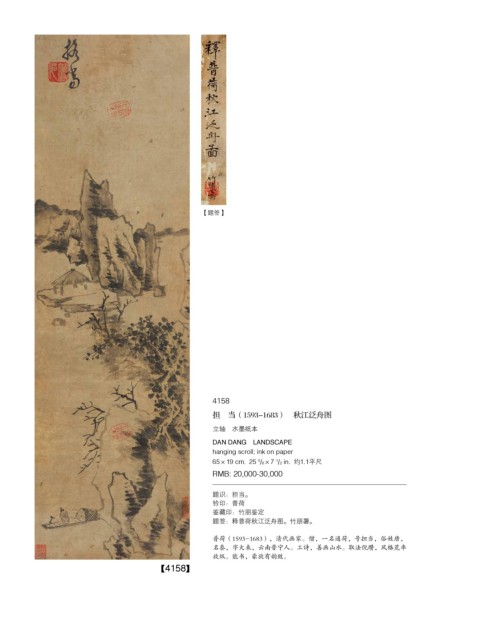 擔當
釋普荷秋江泛舟圖
竹朋署
【题签】
4158
担　当（1593–1683）　秋江泛舟图
立轴　水墨纸本
DAN DANG　LANDSCAPE
hanging scroll; ink on paper
65×19 cm.  25 ⁵/₈×7 ¹/₂ in.  约1.1平尺
RMB: 20,000-30,000
题识：担当。
钤印：普荷
鉴藏印：竹朋鉴定
题签：释普荷秋江泛舟图。竹朋署。
普荷（1593-1683），清代画家。僧，一名通荷，号担当，俗姓唐，
名泰，字大来，云南晋宁人。工诗，善画山水。取法倪瓒，风格荒率
疏纵。能书，豪放有韵致。
【4158】